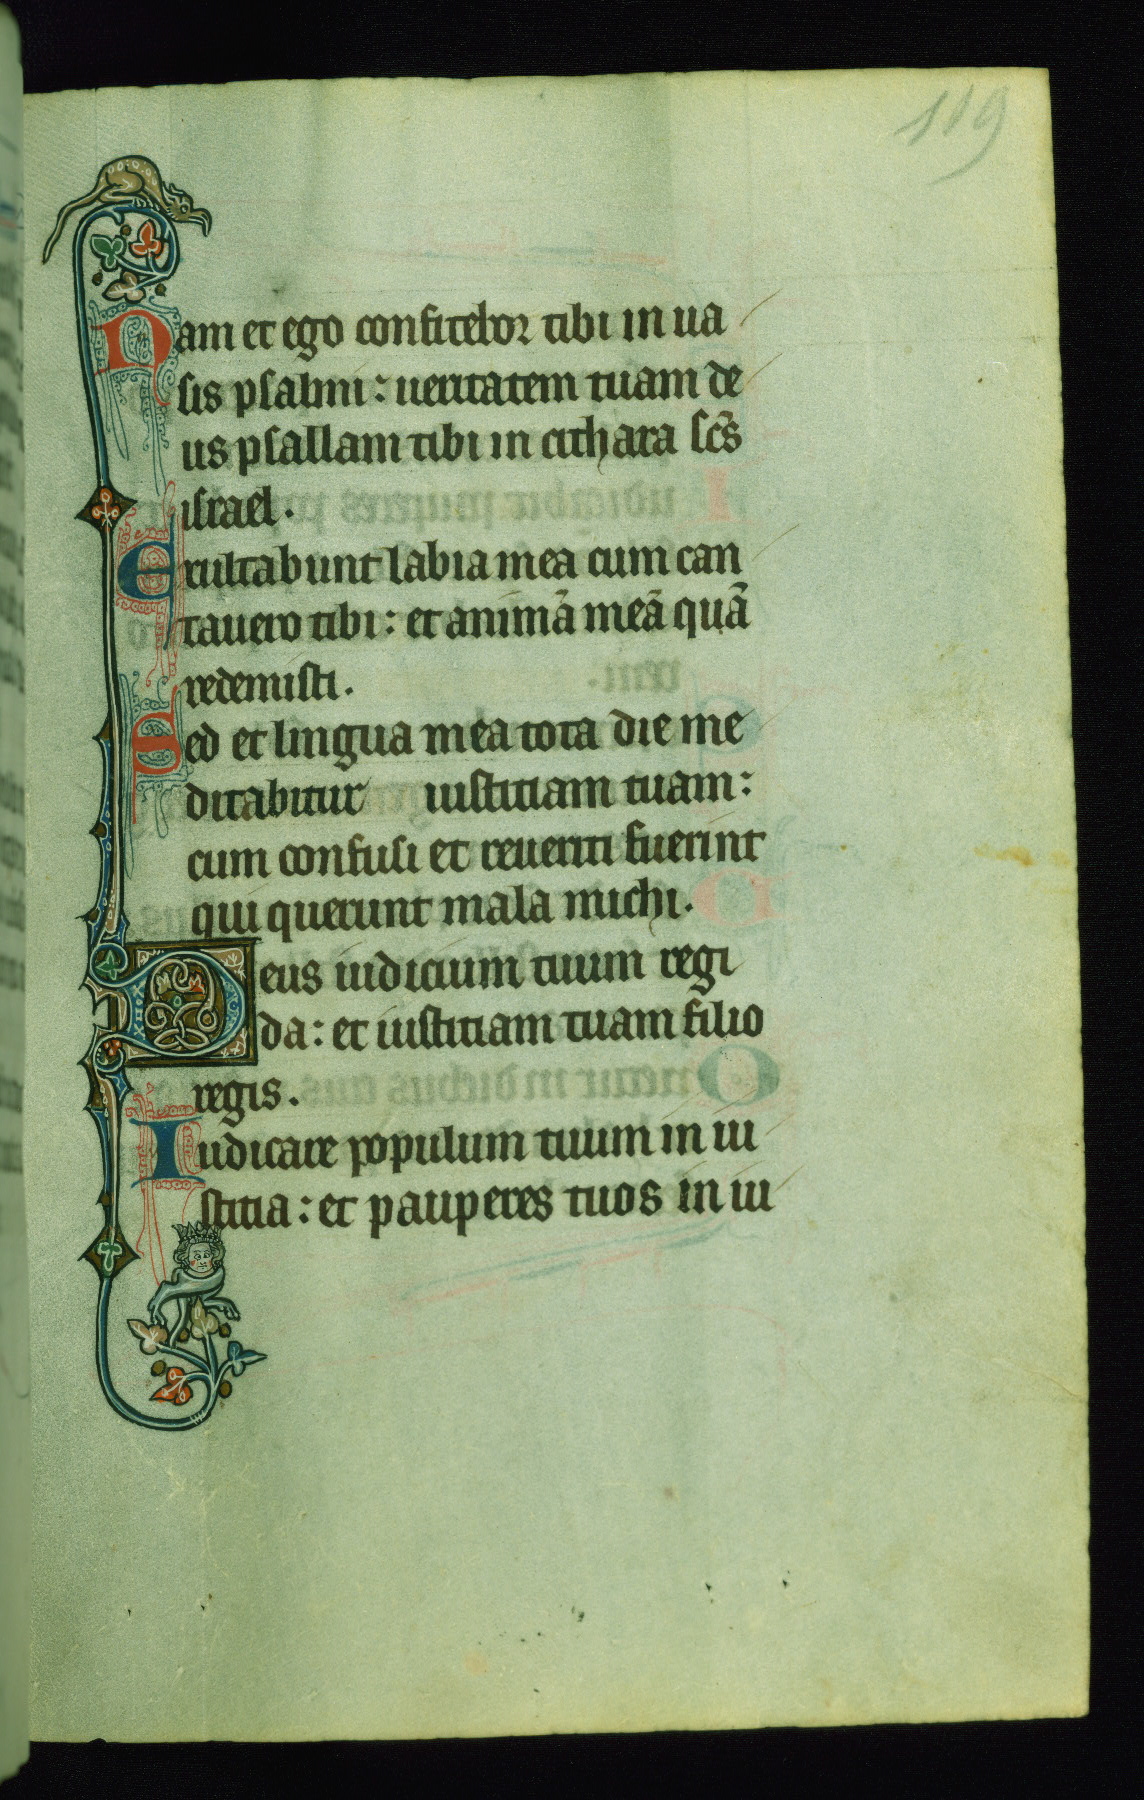 119
Nam et ego confitebor tibi in ua
sis psalmi: ueritatem tuam de
us psallam tibi in cithara sc̄s
israel.
Exultabunt labia mea cum can
tauero tibi: et animā meā quā
redemisti.
Sed et lingua mea tota die me
ditabitur iustitiam tuam:
cum confusi et reueriti fuerint
qui querunt mala michi.
Deus iudicium tuum regi
da: et iustitiam tuam filio
regis.
Iudicare populum tuum in iu
stitia: et pauperes tuos in iu